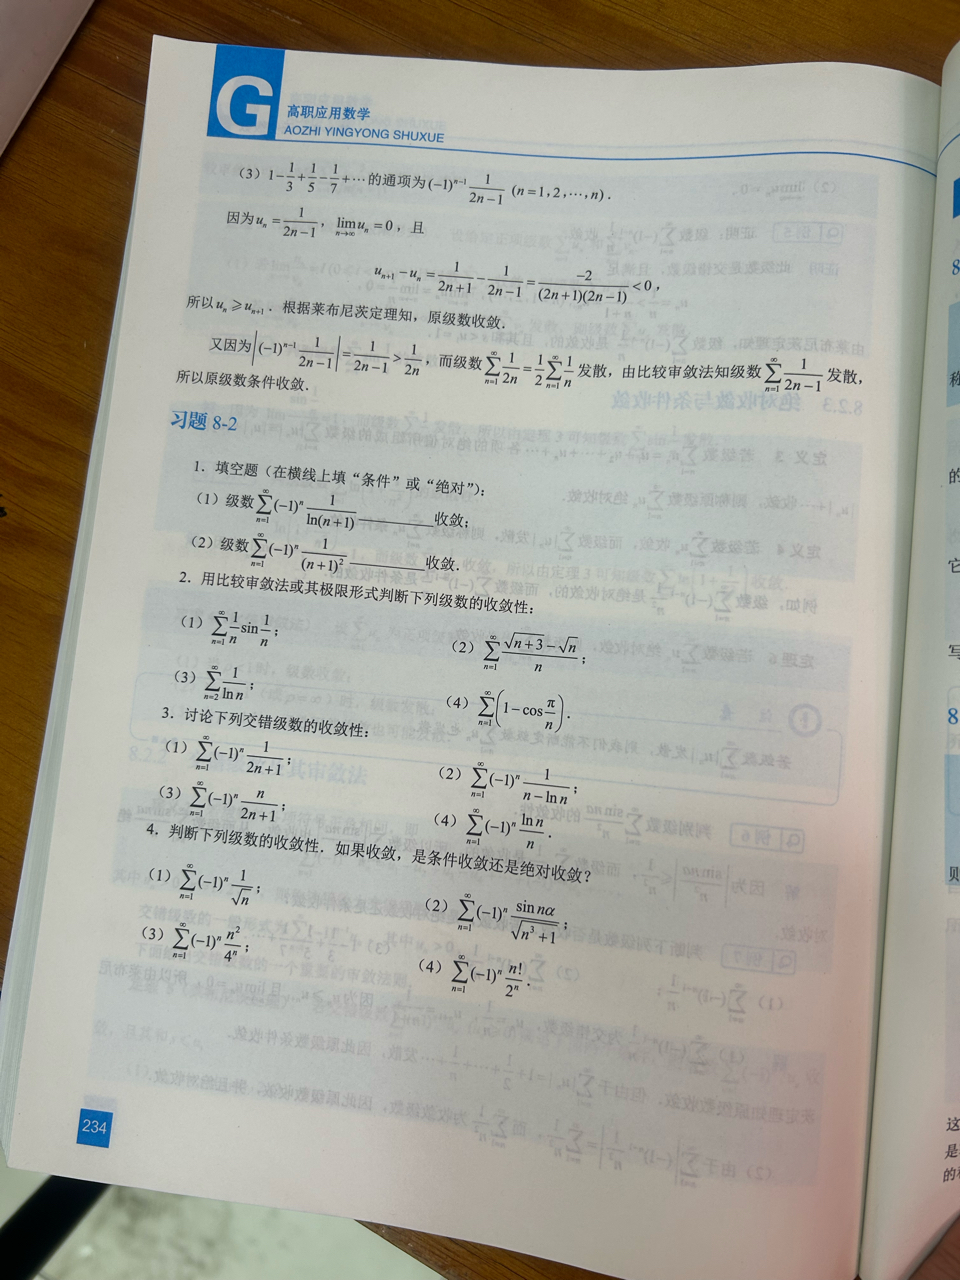 G
高职应用数学
AOZHI YINGYONG SHUXUE
(3) 1-1/3+1/5-1/7+⋯的通项为(-1)^{n-1} 1/(2n-1) (n=1,2,⋯,n).
因为u_n=1/(2n-1), lim_{n→∞} u_n=0, 且
u_{n+1}-u_n=1/(2n+1)-1/(2n-1)=-2/((2n+1)(2n-1))<0,
所以u_n≥u_{n+1}. 根据莱布尼茨定理知, 原级数收敛.
又因为|(-1)^{n-1} 1/(2n-1)|=1/(2n-1)>1/(2n), 而级数∑_{n=1}^{∞} 1/(2n)=1/2 ∑_{n=1}^{∞} 1/n 发散, 由比较审敛法知级数∑_{n=1}^{∞} 1/(2n-1) 发散,
所以原级数条件收敛.
习题 8-2
1. 填空题(在横线上填“条件”或“绝对”):
(1) 级数∑_{n=1}^{∞}(-1)^n 1/ln(n+1) ________收敛;
(2) 级数∑_{n=1}^{∞}(-1)^n 1/(n+1)^2 ________收敛.
2. 用比较审敛法或其极限形式判断下列级数的收敛性:
(1) ∑_{n=1}^{∞} 1/n sin 1/n; (2) ∑_{n=1}^{∞} (√(n+3)-√n)/n;
(3) ∑_{n=2}^{∞} 1/ln n; (4) ∑_{n=1}^{∞}(1-cos π/n).
3. 讨论下列交错级数的收敛性:
(1) ∑_{n=1}^{∞}(-1)^n 1/(2n+1); (2) ∑_{n=1}^{∞}(-1)^n 1/(n-ln n);
(3) ∑_{n=1}^{∞}(-1)^n n/(2n+1); (4) ∑_{n=1}^{∞}(-1)^n ln n/n.
4. 判断下列级数的收敛性. 如果收敛, 是条件收敛还是绝对收敛?
(1) ∑_{n=1}^{∞}(-1)^n 1/√n; (2) ∑_{n=1}^{∞}(-1)^n sin nα/√(n^3+1);
(3) ∑_{n=1}^{∞}(-1)^n n^2/4^n; (4) ∑_{n=1}^{∞}(-1)^n n!/2^n.
234